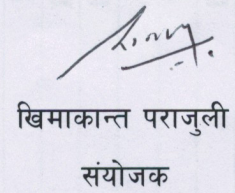 खिमाकान्त पराजुली
संयोजक